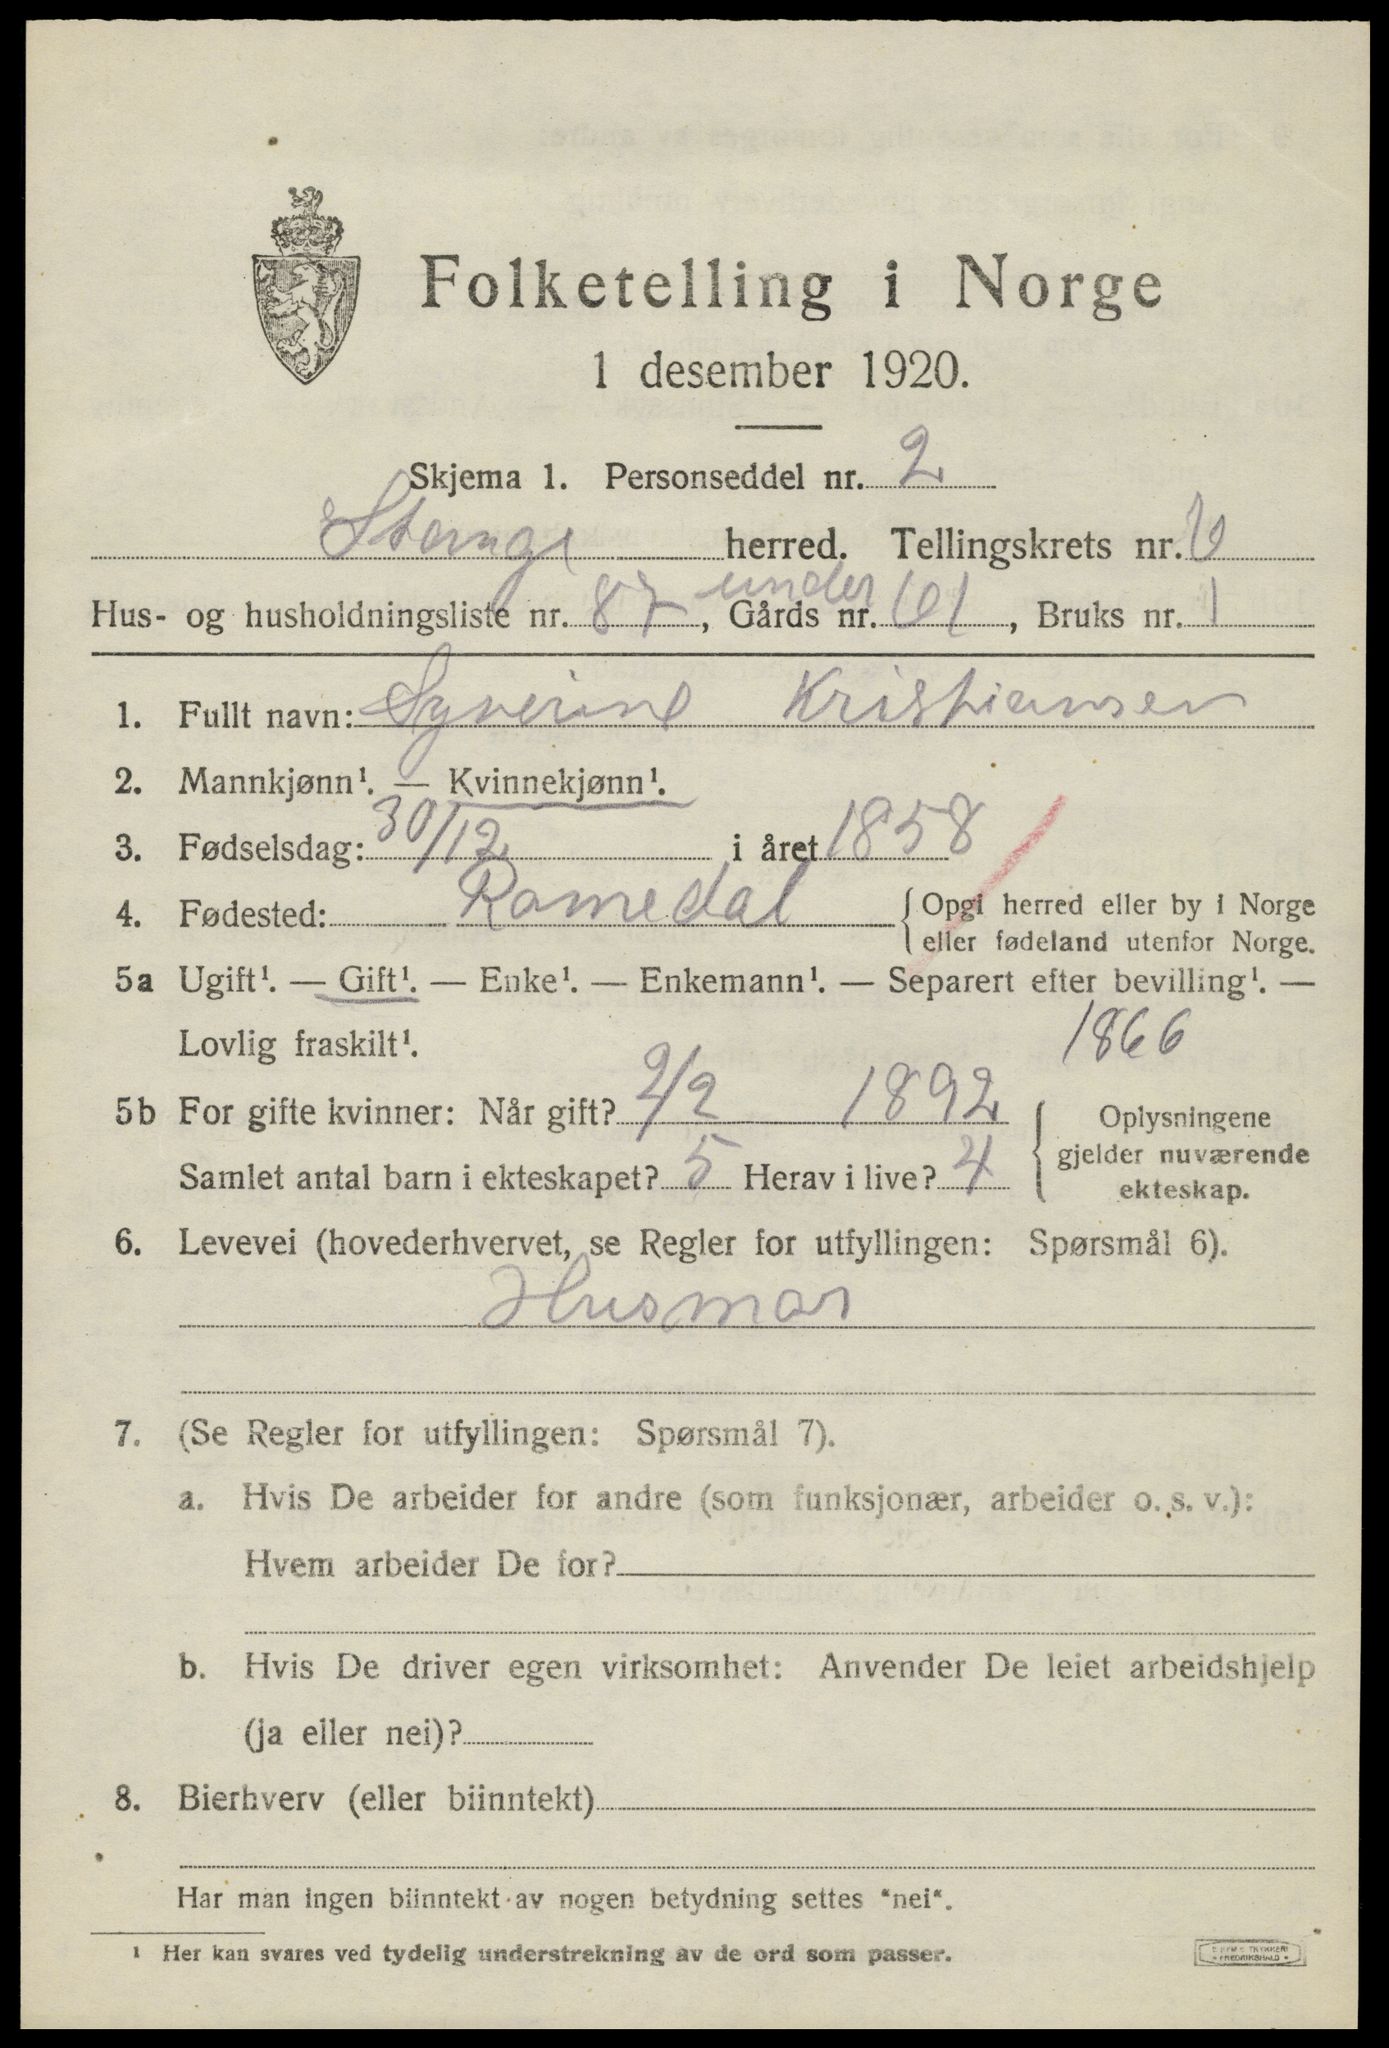 Folketelling i Norge
1 desember 1920.
Skjema 1. Personseddel nr. 2
Stange herred. Tellingskrets nr. 6
under
Hus- og husholdningsliste nr. 87, Gårds nr. 61, Bruks nr. 1
1. Fullt navn: Syverine Kristiansen
2. Mannkjønn¹. — Kvinnekjønn¹.
3. Fødselsdag: 30/12 i året 1858
4. Fødested: Romedal { Opgi herred eller by i Norge
eller fødeland utenfor Norge.
5a Ugift¹. — Gift¹. — Enke¹. — Enkemann¹. — Separert efter bevilling¹. —
Lovlig fraskilt¹. 1866
5b For gifte kvinner: Når gift? 2/2 1892 { Oplysningene
gjelder nuværende
ekteskap.
Samlet antal barn i ekteskapet? 5 Herav i live? 4
6. Levevei (hovederhvervet, se Regler for utfyllingen: Spørsmål 6).
Husmor
7. (Se Regler for utfyllingen: Spørsmål 7).
a. Hvis De arbeider for andre (som funksjonær, arbeider o. s. v.):
Hvem arbeider De for?
b. Hvis De driver egen virksomhet: Anvender De leiet arbeidshjelp
(ja eller nei)?
8. Bierhverv (eller biinntekt)
Har man ingen biinntekt av nogen betydning settes "nei".
¹ Her kan svares ved tydelig understrekning av de ord som passer.
FREDRIKSHALD